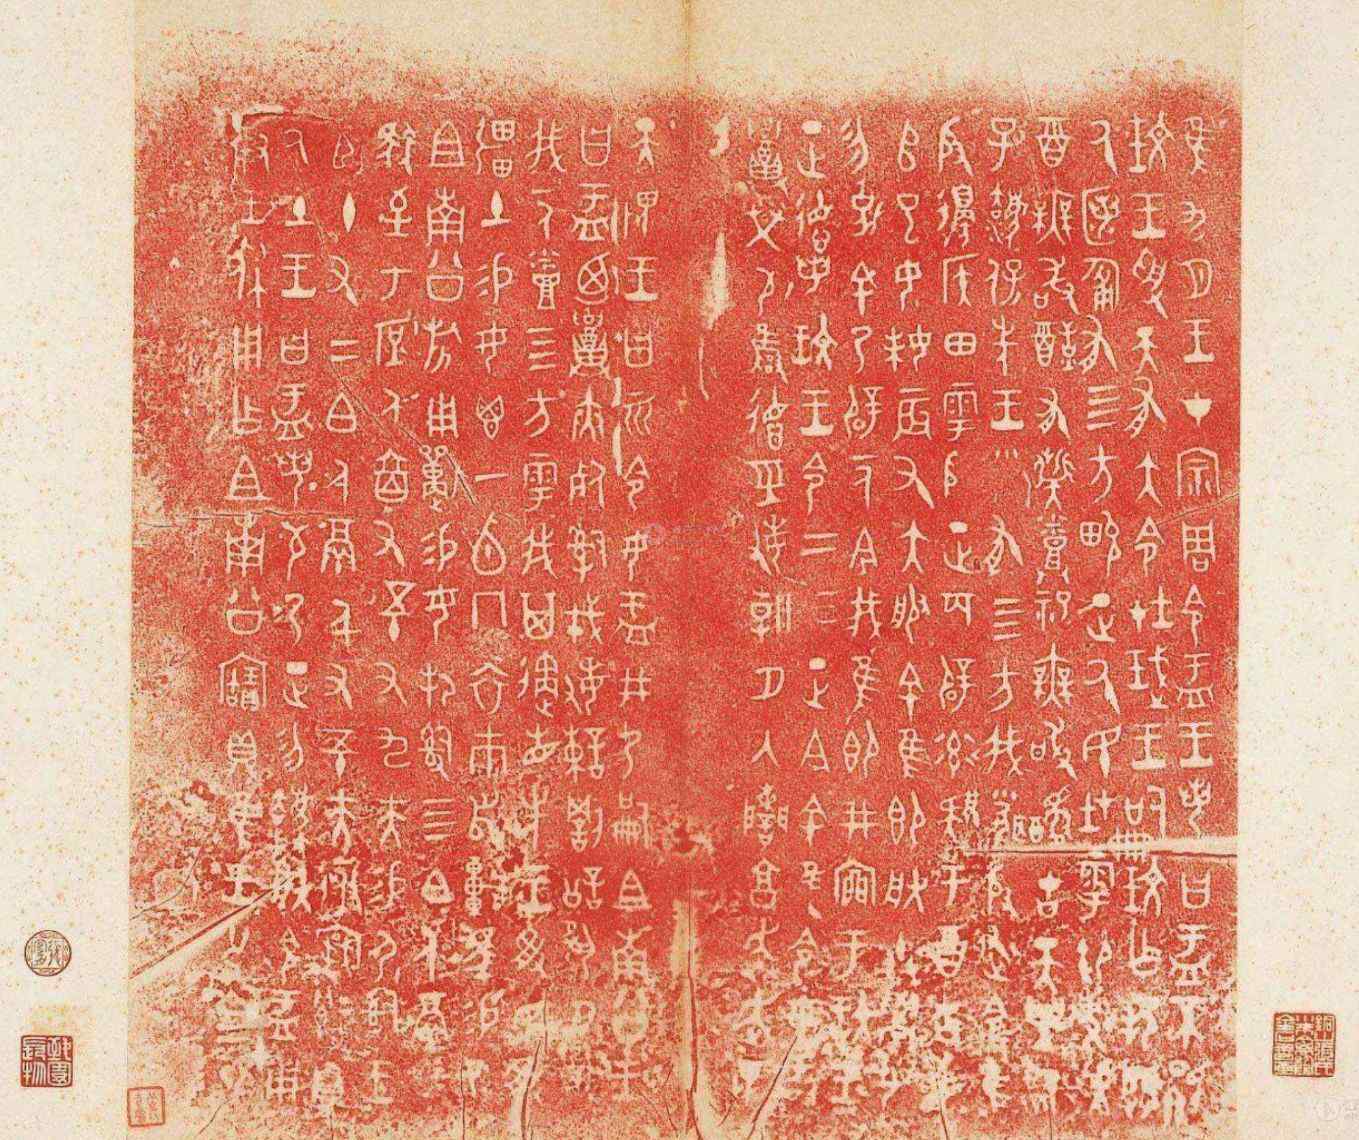 隹九月王才宗周令盂王若曰盂不顯
玟王受天有大令在珷王嗣玟乍邦闢
氒匿匍有四方畯正氒民在雩御事
酉無敢酖有祡蒸祀無敢醻古天異臨
子灋保先王有四方我聞殷述令隹
殷邊侯田雩殷正百辟率肄于酉古喪
師已女妹辰又大服余隹即朕小學女
勿逸余乃辟一人今我隹即井㐭于玟王
正德若玟王令二三正今余隹令女盂
召榮敬雝德經敏朝夕入讕享奔走畏
天畏王曰而令女盂井乃嗣且南公王
曰盂迺召夾死司戎敏諫罰訟夙夕召
我一人烝四方雩我其遹省先王受民受
疆土易女鬯一卣冂衣巿舄車馬易乃
且南公旂用狩易女邦司四白人鬲自
馭至于庶人六百又五十又九夫易尸司王
臣十又三白人鬲千又五十夫遷自
氒土王曰盂若敬乃正勿灋朕令盂用
對王休用乍且南公寶鼎隹王廿又三祀